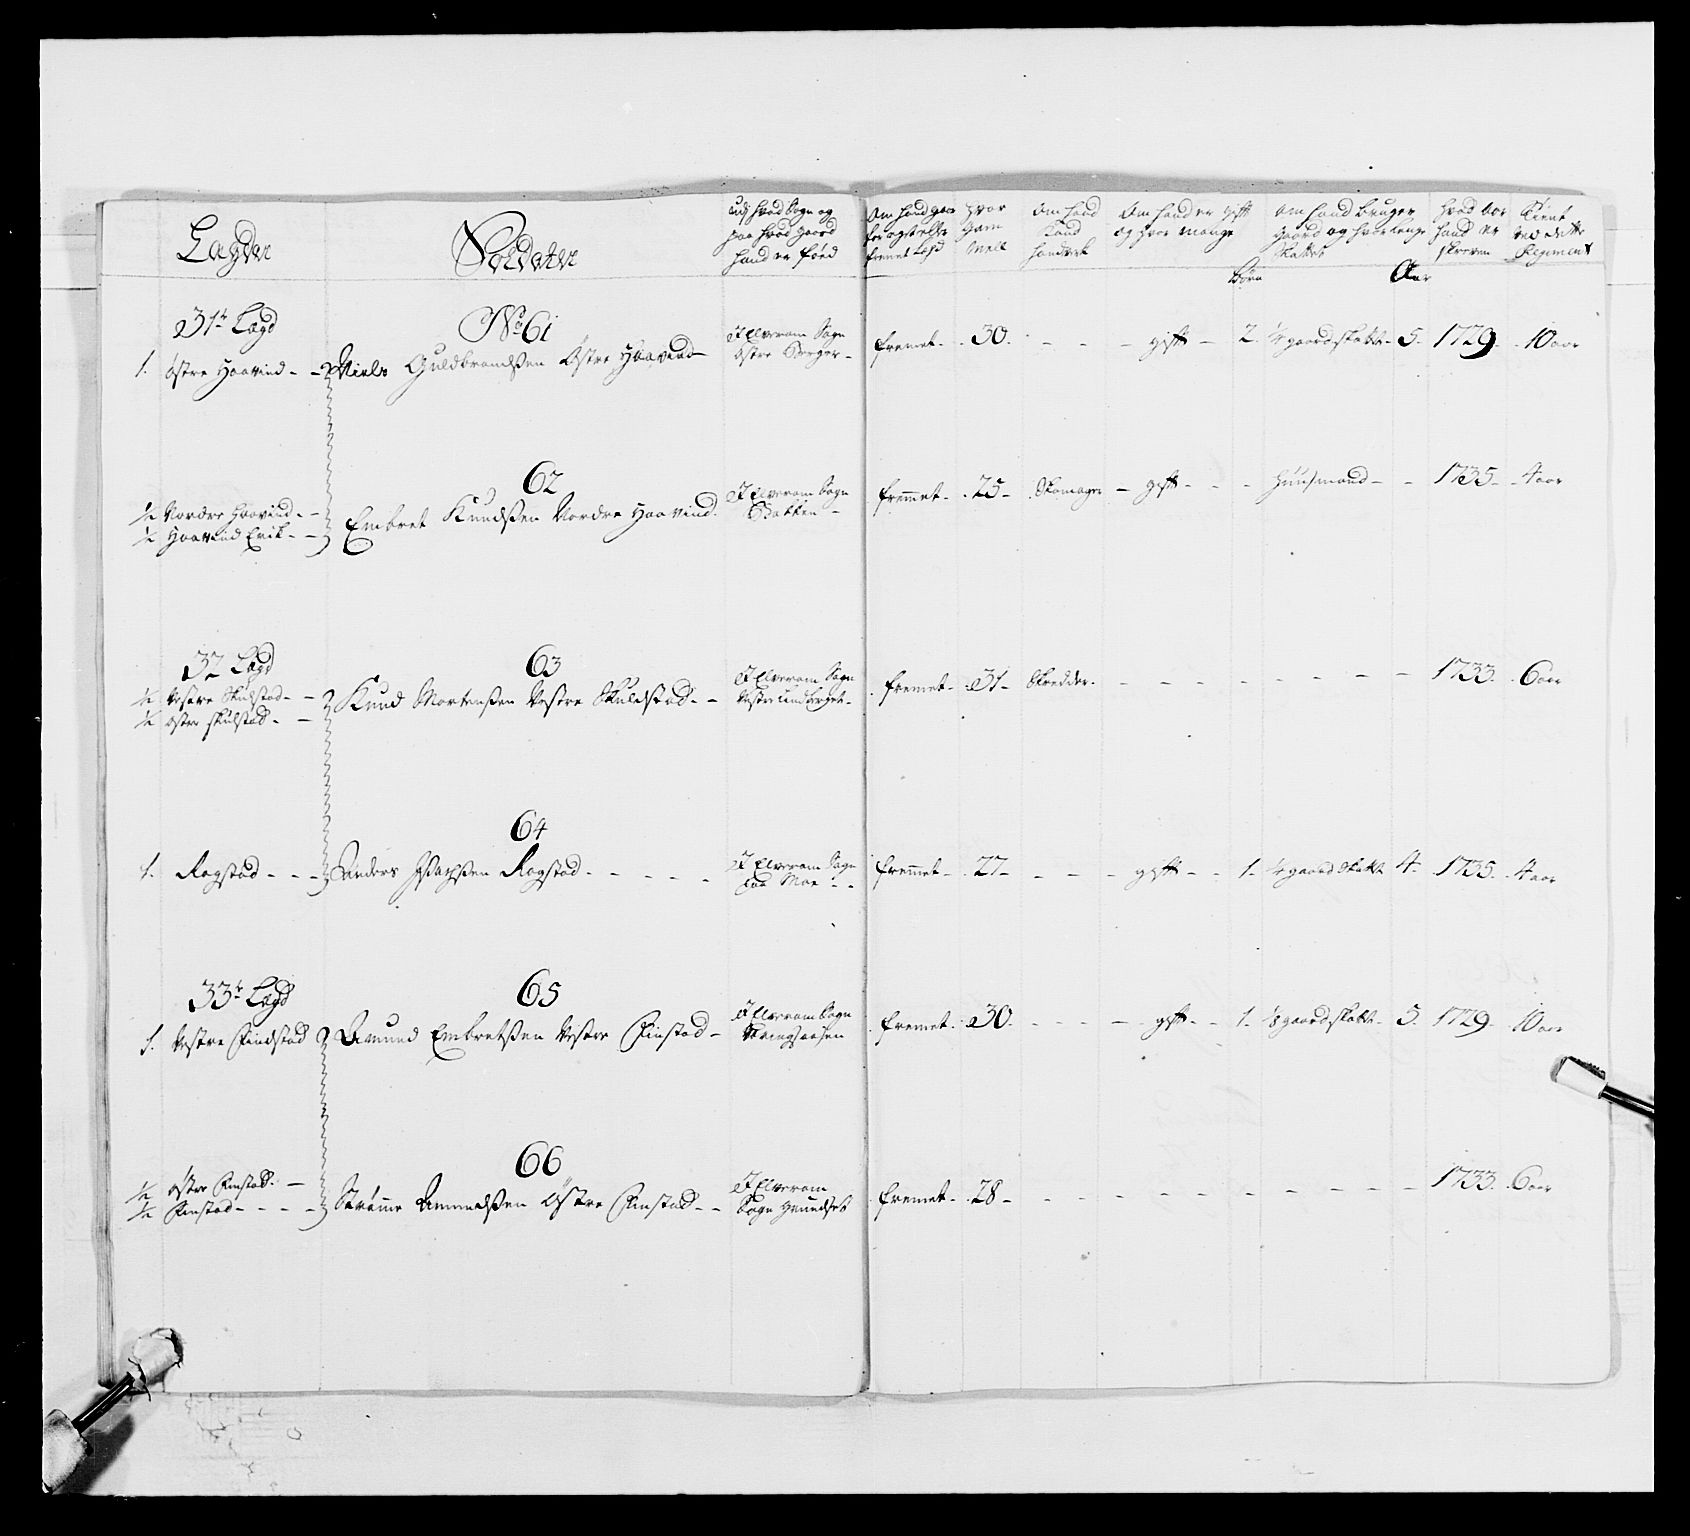 Lægder
Soldater
udj hvad Sogn og
paa hvad gaard
hand er føed
Om hand gaar
for
fremet Lægd
hvor
Gam
mell
om hand
kand
handverk
Om hand er gift
og hvor mange
Børn
om hand bruger
gaard og hvor lenge
skattet
Aar
hvad Aar
hand er
skreven
Tient
ved dette
Regiment
31te Lægd
No 61
1. Østre Haavind - - Niels Guldbrandßen Østre Haavind
I Elverom Sogn
Østre Berger -
fremet - 30. - - - gift - 2. 1/4 gaard skatte - 5. 1729. 10 aar
62
1/2 Nordre Haavind - -
1/2 Haavind Erik - -
Embret Knudßen Nordre Haavind.
I Elverom Sogn
Bakken -
fremmet - 25 - Skomager - gift - - - Huusmand - - 1735 - 4 aar
32 Lægd
63
1/2 Vestre Skulstad - -
1/2 Østre Skulstad - -
Knud Mortenßen Vestre Skulstad - -
I Elverom Sogn
Vestre Lindberget -
fremet - 31 - Skredder. - - - - - - - - 1733. 6 aar
64
1. Rogstad - - - Anders Isachßen Rogstad - - - - - -
I Elverom Sogn
paa Moe - -
fremmet - 27 - - - - - gift - - 1 - 1/4 gaard Skatte 4 - 1735 - 4 aar
33te Lægd
65
1. Vestre Findstad Amund Embretßen Vestre Finstad -
I Elverom Sogn
fremet - 30. - - - - gift - - 1. 1/8 gaard skatte - 5. 1729 - 10 aar
66
1/2 Østre Finstad - -
1/2 Finstad - - - -
Strømme Ammundßen Østre Finstad - -
I Elverom
Sogn Grundset
fremet - 28 - - - - - - - - - - - 1733. 6 aar